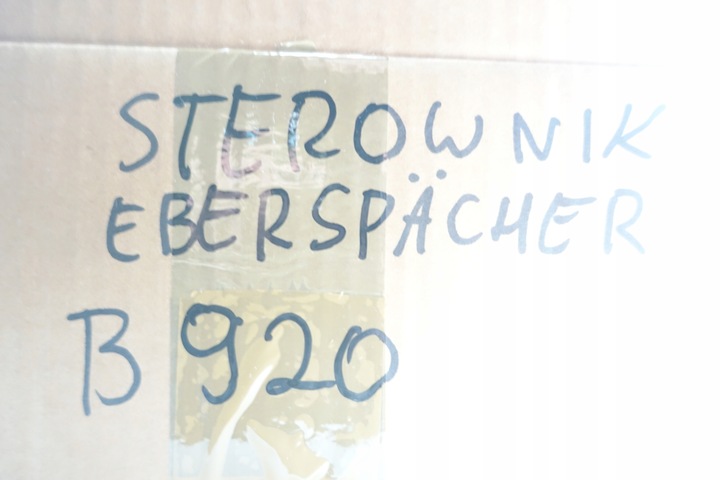 STEROWNIK
EBERSPÄCHER
B 920